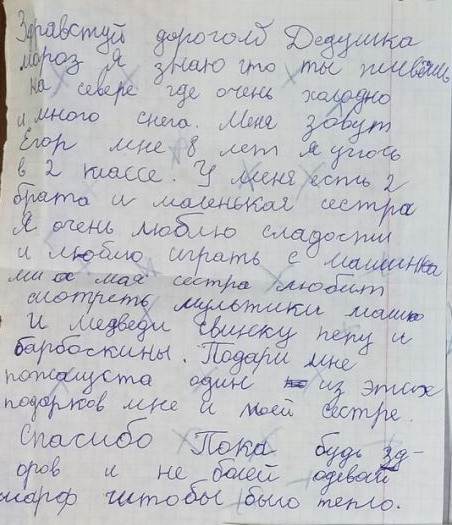 Здравствуй дорогой Дедушка
мороз я знаю что ты живёшь
на севере где очень холодно
и много снега. Меня зовут
Егор мне 8 лет я учюсь
в 2 классе. У меня есть 2
брата и маленькая сестра
Я очень люблю сладости
и люблю играть с машинка
ми а мая сестра любит
смотреть мультики маша
И медведи свинку пепу и
барбоскины. Подари мне
пожалуста один из этих
подорков мне и моей сестре.
Спасибо Пока будь зд-
оров и не болей одевай
шарф чштобы было тепло.